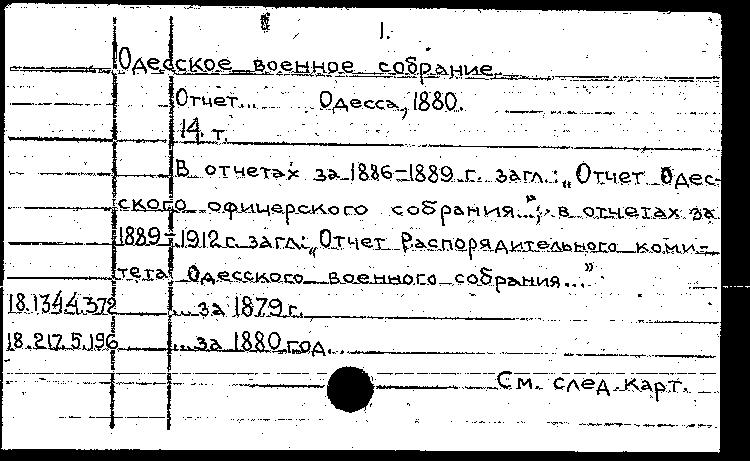 1.
Одесское военное собрание.
Отчет... Одесса, 1880.
14. т.
В отчетах за 1886-1889 г. загл.: „Отчет Одес-
ского офицерского собрания...”; в отчетах за
1889-1912 г. загл: „Отчет Распорядительного коми-
тета Одесского военного собрания...”
18.134.4.372 ...за 1879 г.
18.217.5.196 ...за 1880 год.
См. след. карт.